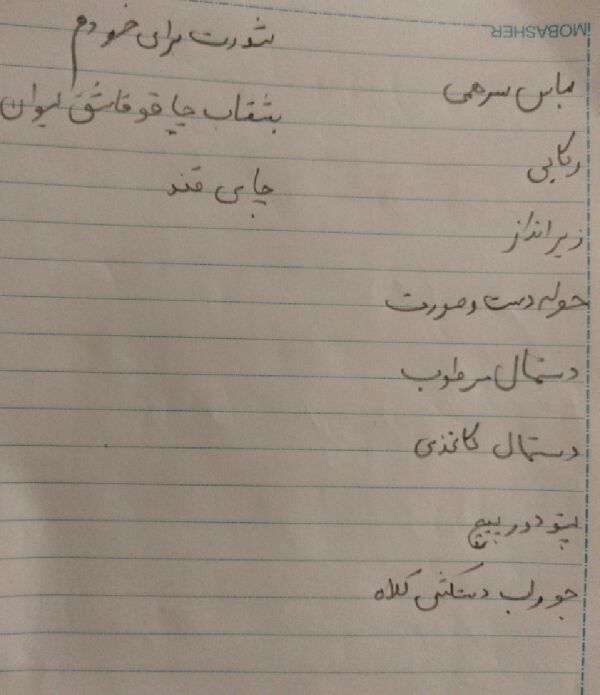 MOBASHER
لباس سرهمی
رکابی
زیرانداز
حوله دست و صورت
دستمال مرطوب
دستمال کاغذی
پتو دور پیچ
جوراب دستکش کلاه
شورت برای خودم
بشقاب چاقو قاشق لیوان
چای قند